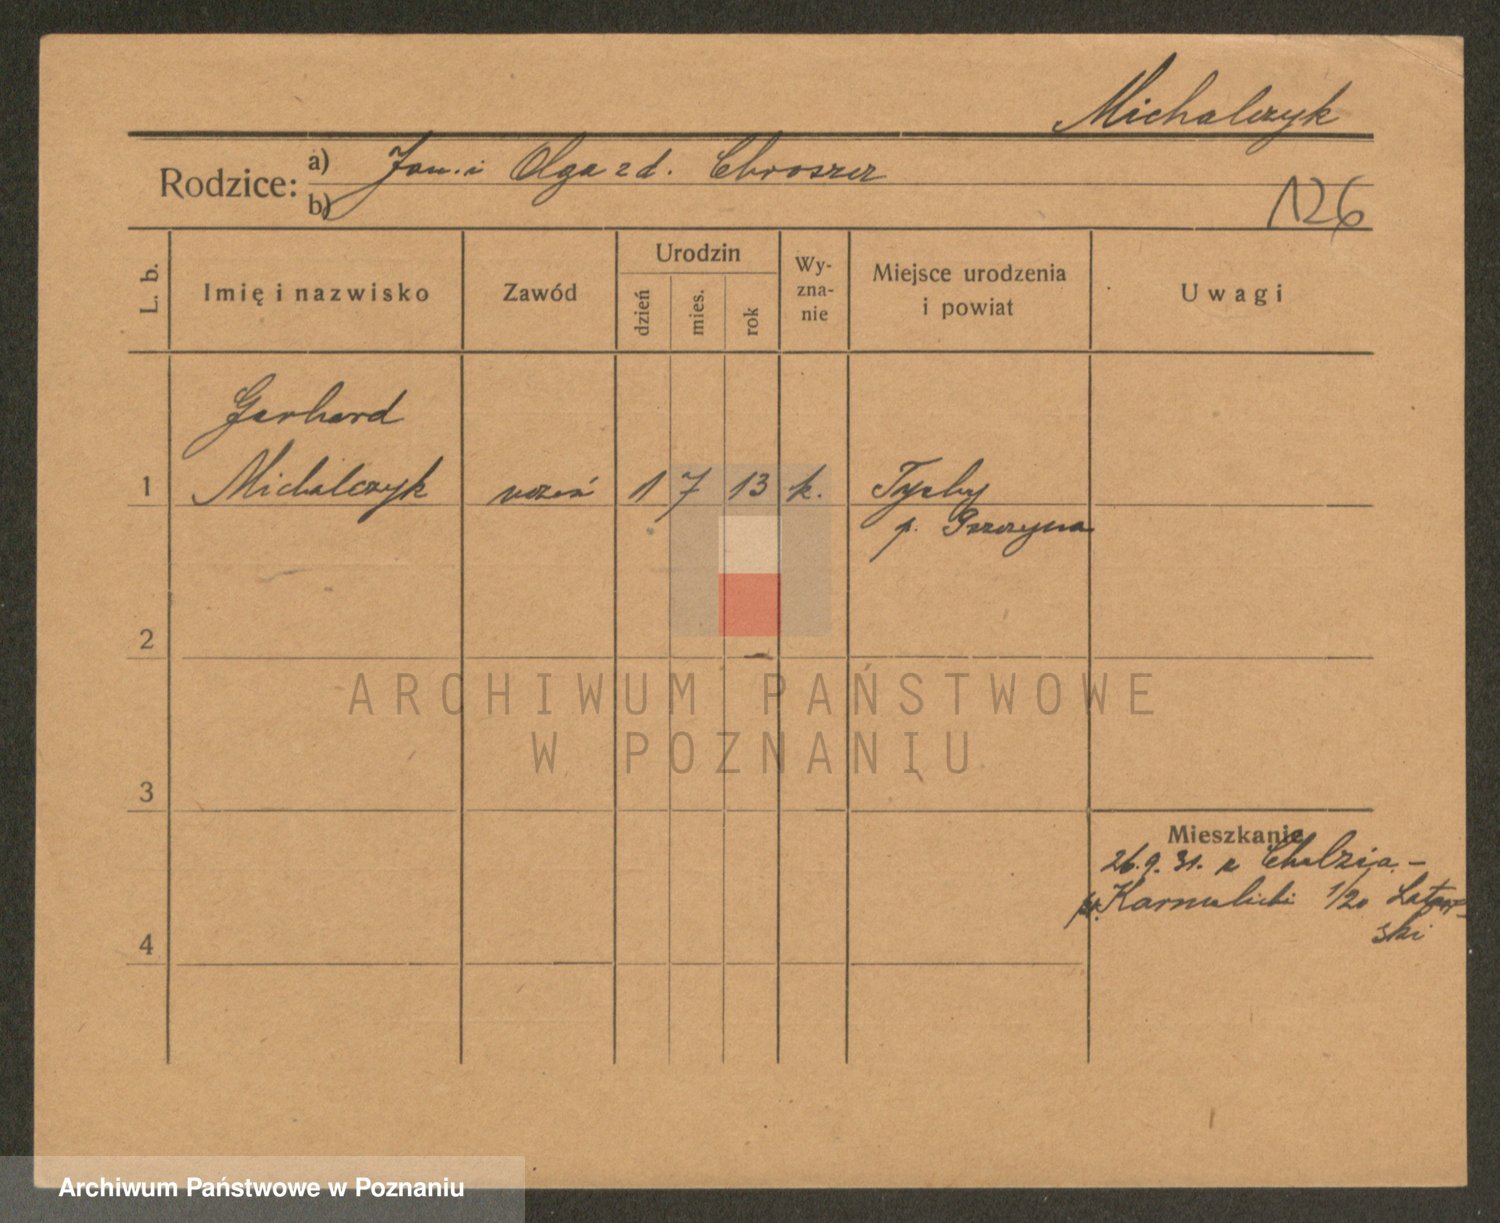 Michalczyk
Rodzice:
a) Jan i Olga zd. Chroszcz
b)
126
L. b.
Imię i nazwisko
Zawód
Urodzin
dzień
mies.
rok
Wy-
zna-
nie
Miejsce urodzenia
i powiat
Uwagi
Gerhard
1 Michalczyk uczeń 1 7 13 k. Tychy
p. Pszczyna
2
ARCHIWUM PAŃSTWOWE
W POZNANIU
3
Mieszkanie
26.9.31. z
pl. Karmelicki 1/20
4
Archiwum Państwowe w Poznaniu